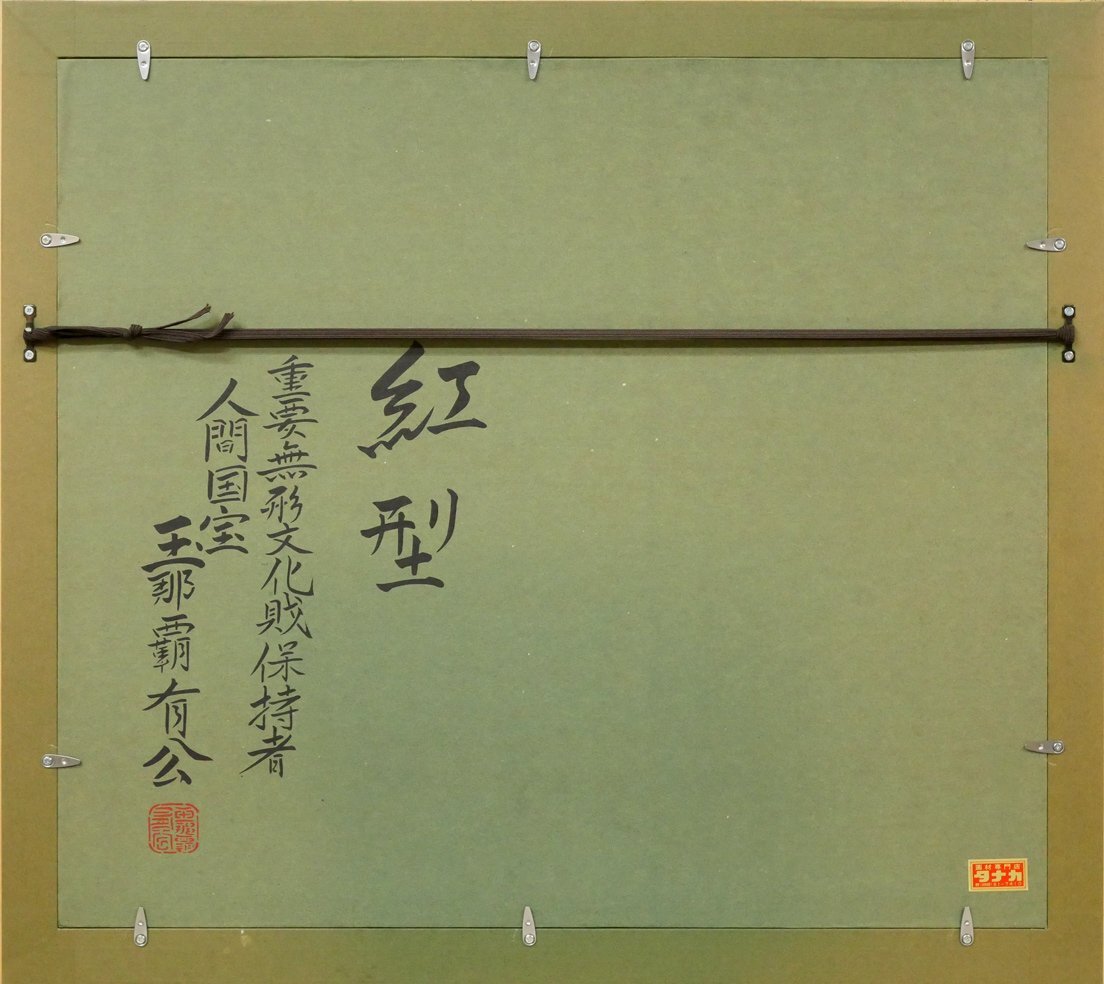 紅型
重要無形文化財保持者
人間国宝
玉那覇有公
画材専門店
タナカ